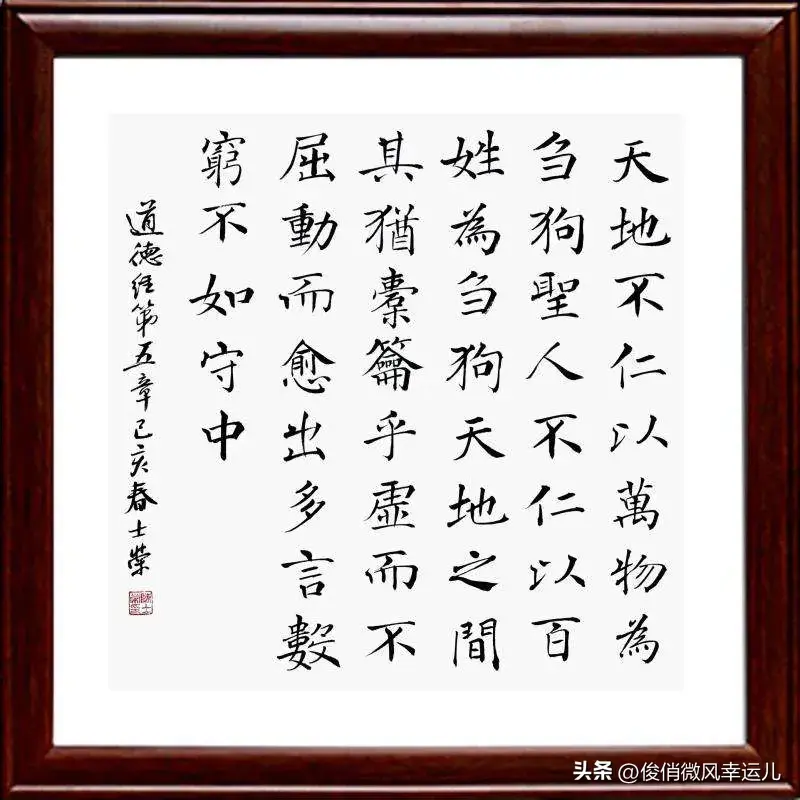 天地不仁以萬物為
刍狗聖人不仁以百
姓為刍狗天地之間
其猶橐籥乎虛而不
屈動而愈出多言數
窮不如守中
道德经第五章己亥春士榮
头条 @俊俏微风幸运儿